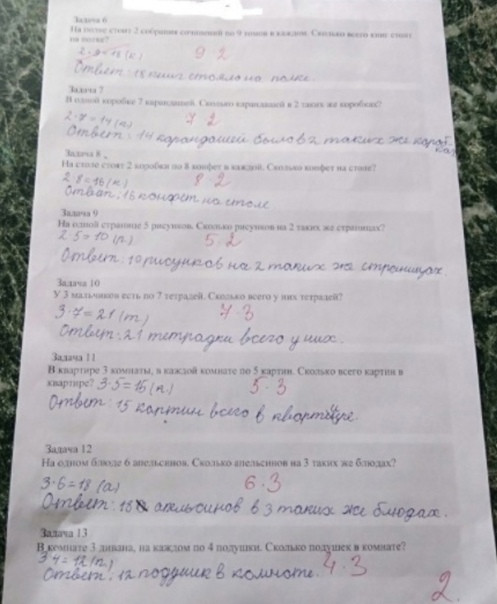 Задача 6
На полке стоят 2 собрания сочинений по 9 томов в каждом. Сколько всего книг стоит
на полке?
2·9=18 (к) 9 2
Ответ: 18 книг стояло на полке.
Задача 7
В одной коробке 7 карандашей. Сколько карандашей в 2 таких же коробках?
2·7=14 (к) 7 2
Ответ: 14 карандашей было в 2 таких же короб
ках
Задача 8
На столе стоят 2 коробки по 8 конфет в каждой. Сколько конфет на столе?
2·8=16 (к) 8 2
Ответ: 16 конфет на столе
Задача 9
На одной странице 5 рисунков. Сколько рисунков на 2 таких же страницах?
2·5=10 (п.) 5 2
Ответ: 10 рисунков на 2 таких же страницах
Задача 10
У 3 мальчиков есть по 7 тетрадей. Сколько всего у них тетрадей?
3·7=21 (т) 7·3
Ответ: 21 тетрадки всего у них.
Задача 11
В квартире 3 комнаты, в каждой комнате по 5 картин. Сколько всего картин в
квартире? 3·5=15 (к.) 5·3
Ответ: 15 картин всего в квартире.
Задача 12
На одном блюде 6 апельсинов. Сколько апельсинов на 3 таких же блюдах?
3·6=18 (а) 6·3
Ответ: 18 апельсинов в 3 таких же блюдах.
Задача 13
В комнате 3 дивана, на каждом по 4 подушки. Сколько подушек в комнате?
3·4=12 (п.) 4·3
Ответ: 12 подушик в комноте.
2.